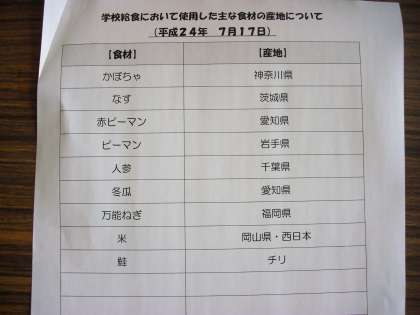 学校給食において使用した主な食材の産地について
(平成24年 7月17日)
【食材】 【産地】
かぼちゃ 神奈川県
なす 茨城県
赤ピーマン 愛知県
ピーマン 岩手県
人参 千葉県
冬瓜 愛知県
万能ねぎ 福岡県
米 岡山県・西日本
鮭 チリ